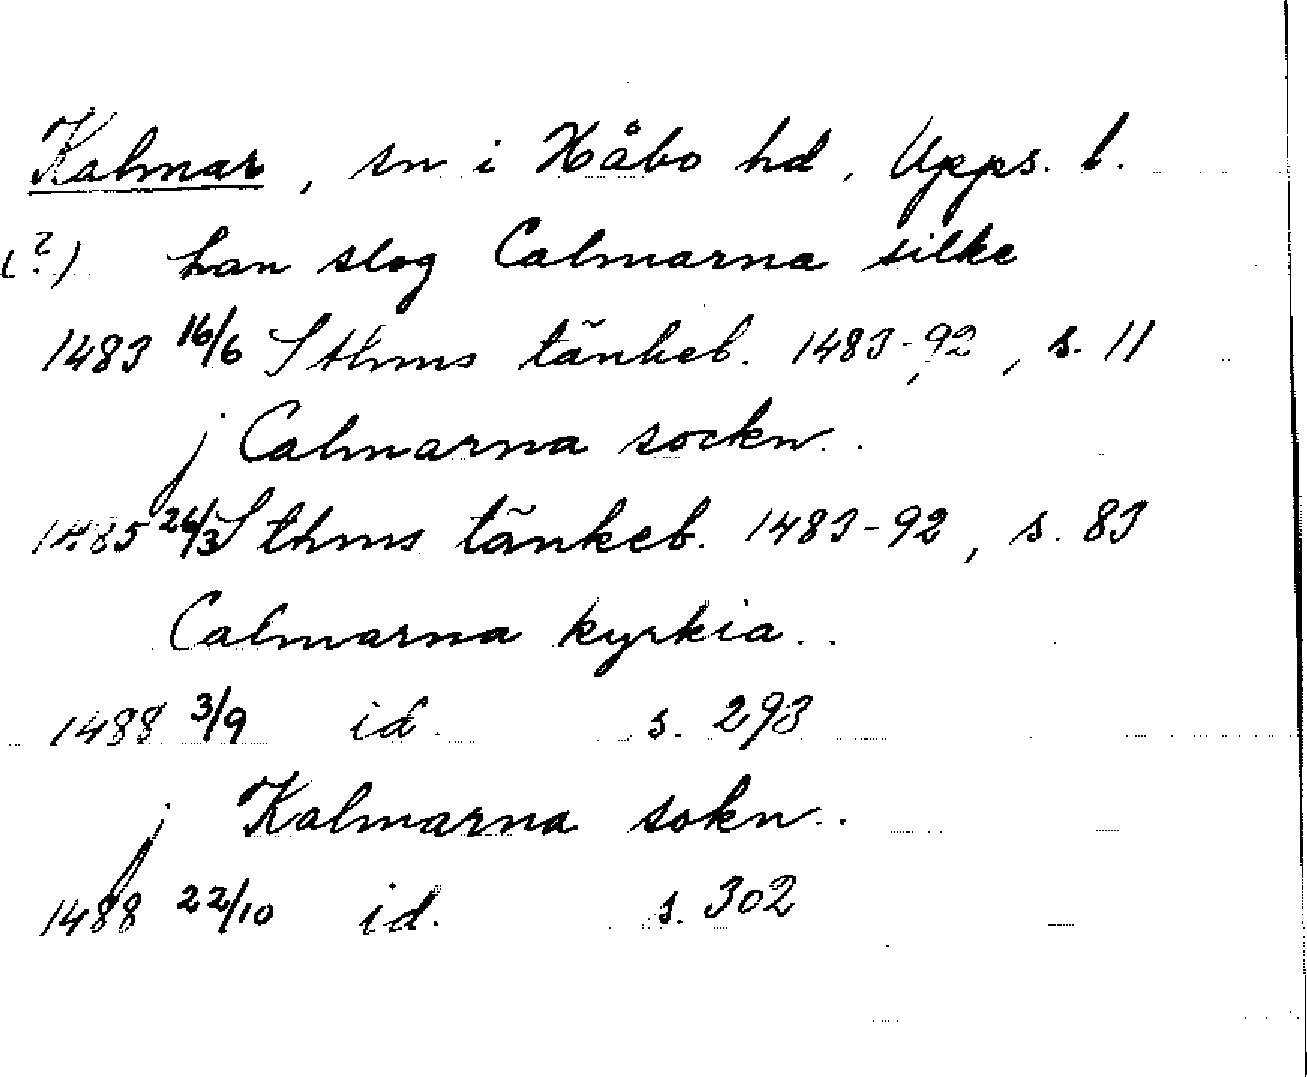 Kalmar, sn i Håbo hd, Upps. l.
(?) han slog Calmarna silke
1483 16/6 Sthms tänkeb. 1483-92, s. 11
j Calmarna sockn..
1485 26/3 Sthms tänkeb. 1483-92, s. 83
Calmarna kyrkia..
1488 3/9 id. s. 293
j Kalmarna sokn..
1488 22/10 id. s. 302